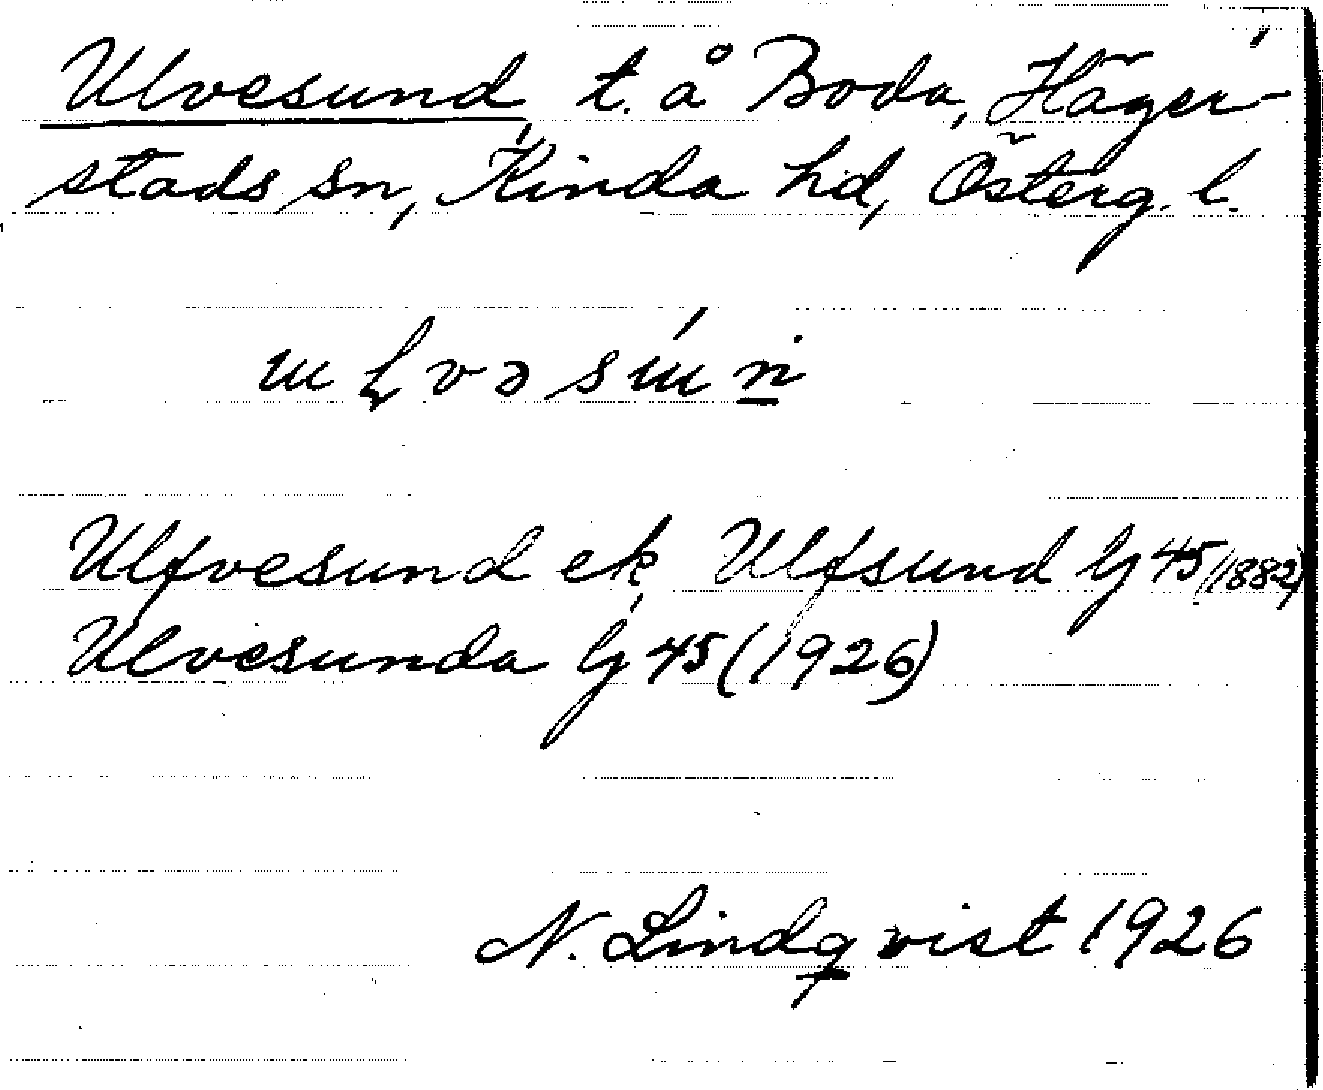 Ulvesund, t. å Boda, Häger-
stads sn, Kinda hd, Österg. l.
Ulfvesund ek, Ulfsund Gj 45 (1882)
Ulvesunda Gj 45 (1926)
N. Lindqvist 1926